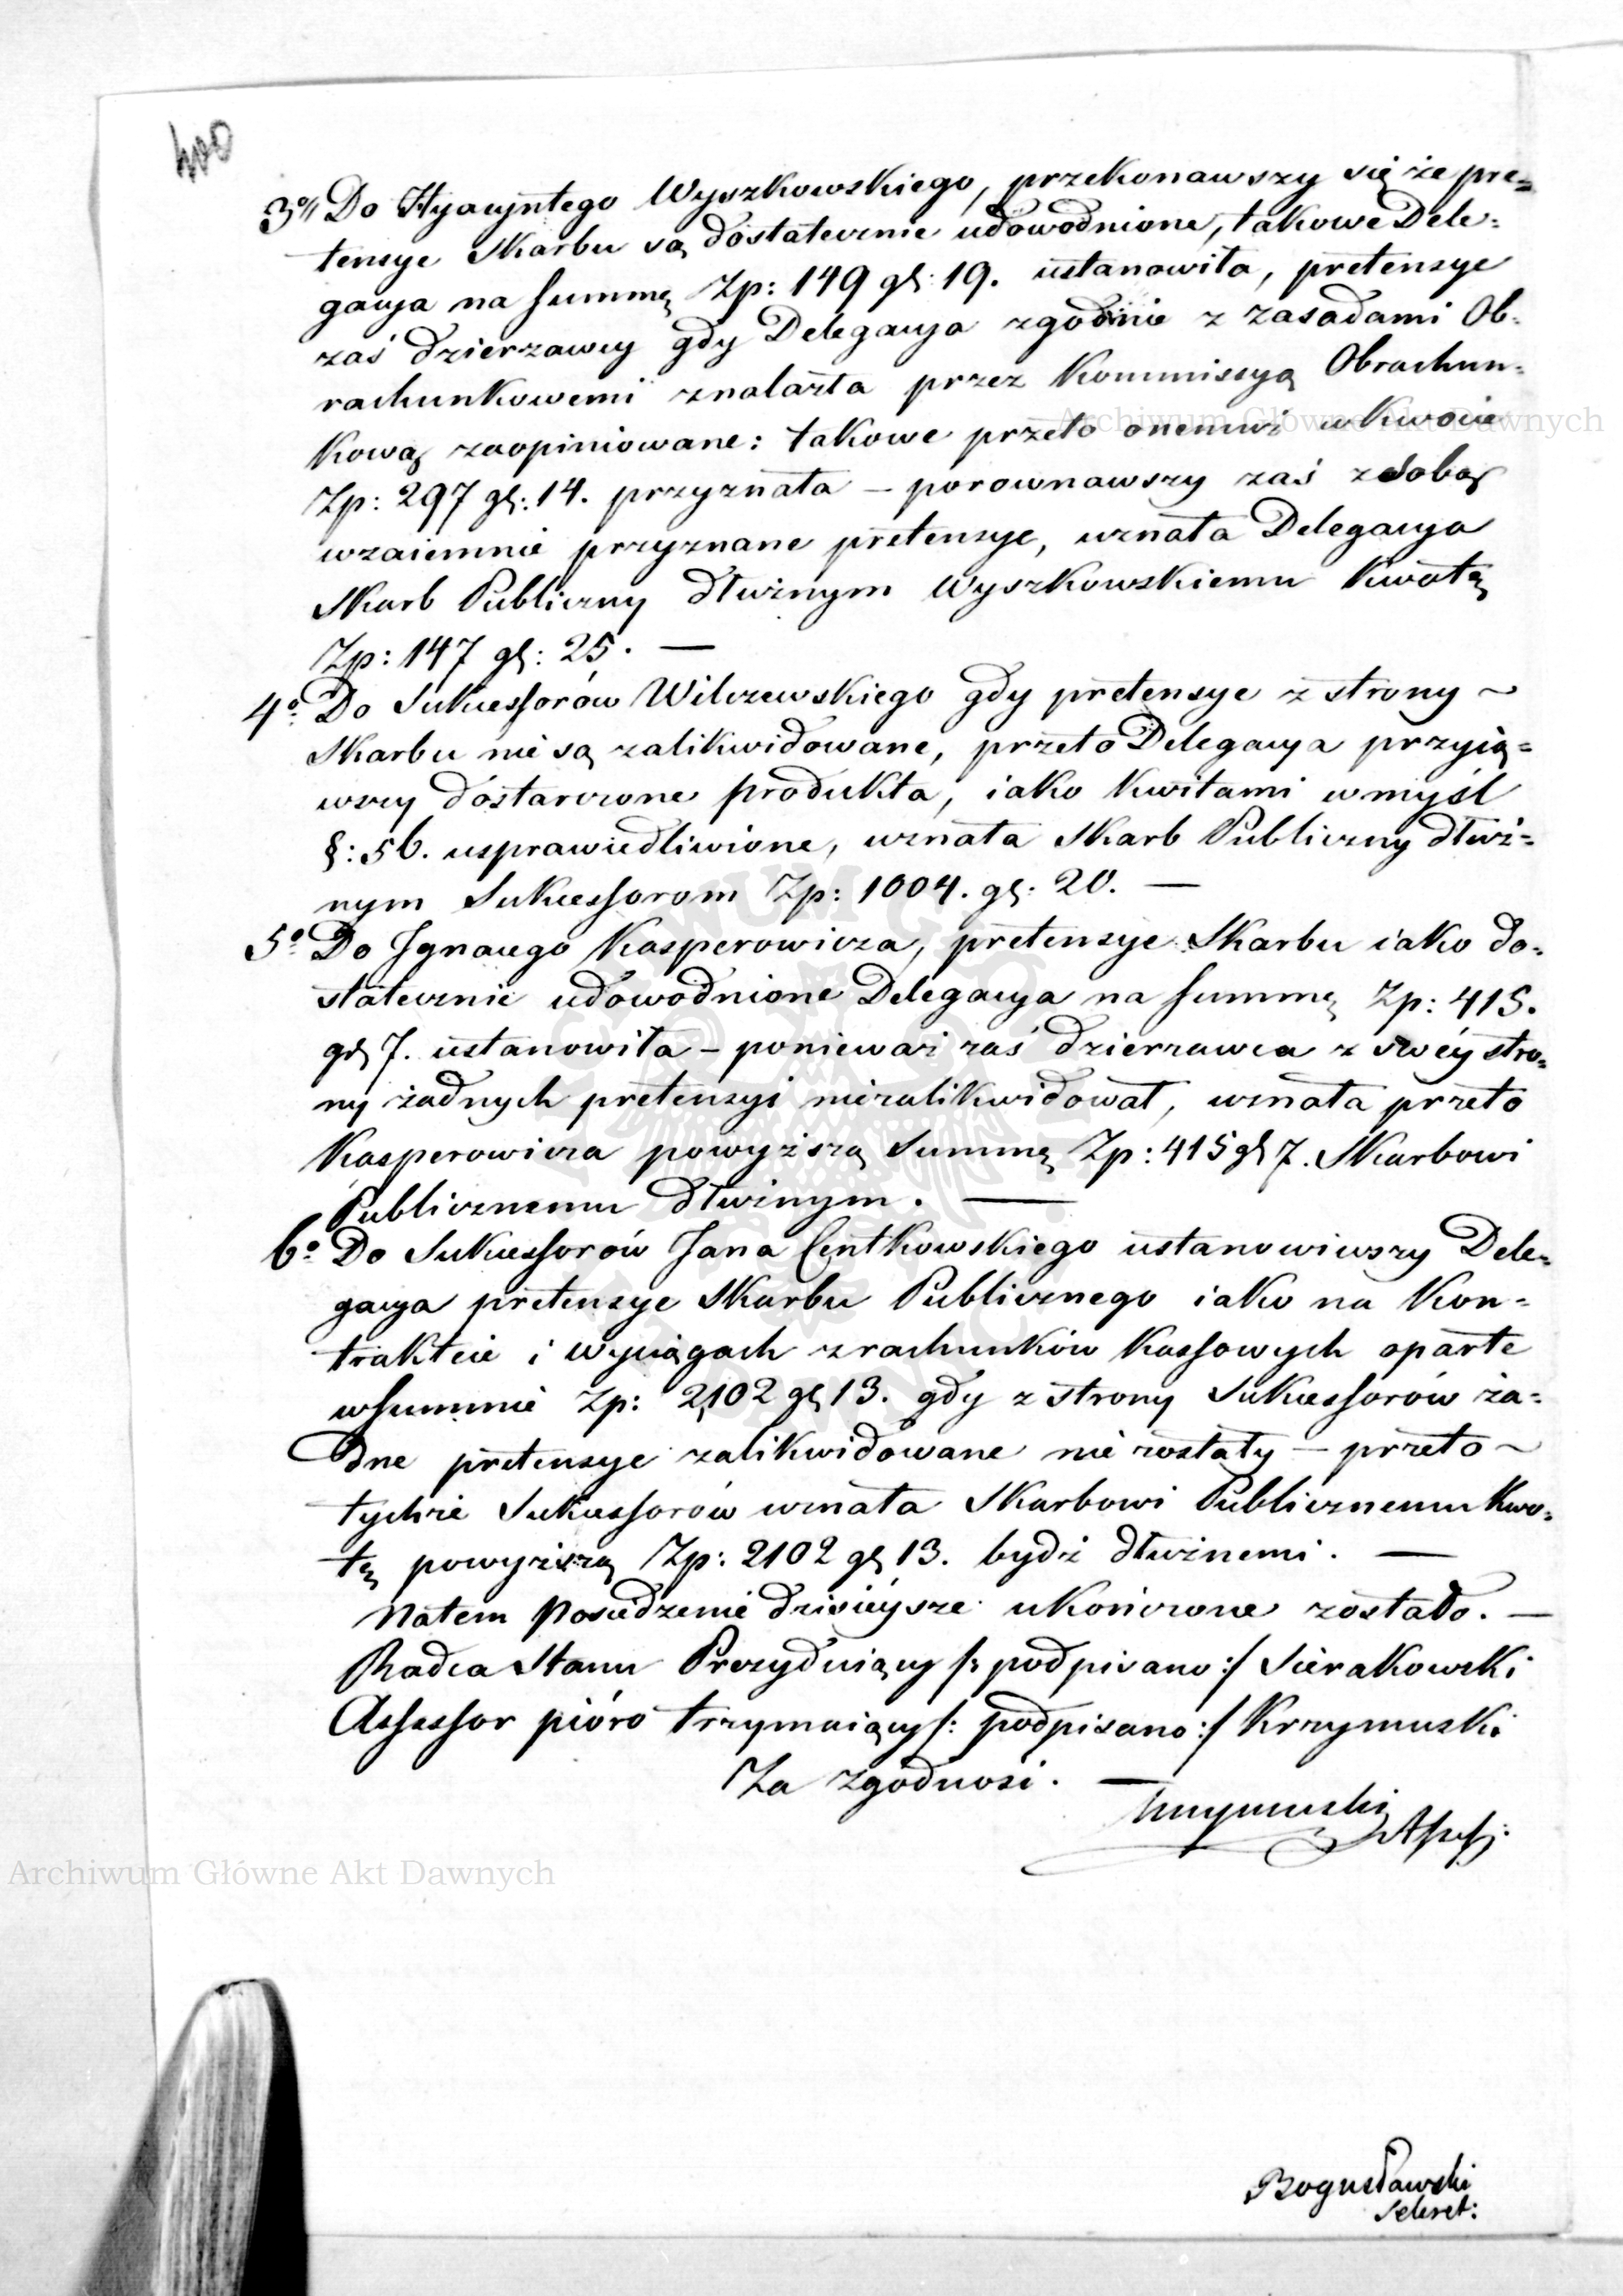 400
3o Do Hyacyntego Wyszkowskiego, przekonawszy się że pre=
tensye Skarbu są dostatecznie udowodnione, takowe Dele=
gacya na summę Zp: 149 gr: 19. ustanowiła, pretensye
zaś dzierzawcy gdy Delegacya zgodnie z zasadami Ob=
rachunkowemi znalazła przez Kommissyą Obrachun=
kową zaopiniowane: takowe przeto onemuż w kwocie
Zp: 297 gr: 14. przyznała – porownawszy zaś z sobą
wzaiemnie przyznane pretensye, uznała Delegacya
Skarb Publiczny dłużnym Wyszkowskiemu kwotę
Zp: 147 gr: 25. —
4o Do Sukcessorów Wilczewskiego gdy pretensye z strony ~
Skarbu nie są zalikwidowane, przeto Delegacya przyią=
wszy dostarczone produkta, iako kwitami w myśl
§: 56. usprawiedliwione, uznała Skarb Publiczny dłuż=
nym Sukcessorom Zp: 1004. gr: 20. —
5o Do Ignacego Kasperowicza, pretensye Skarbu iako do=
statecznie udowodnione Delegacya na summę Zp: 415.
gr 7. ustanowiła – ponieważ zaś dzierzawca z swéy stro=
ny żadnych pretensyi niezalikwidował, uznała przeto
Kasperowicza powyższą Summę Zp: 415 gr 7. Skarbowi
Publicznemu dłużnym. —
6o Do Sukcessorów Jana Centkowskiego ustanowiwszy Dele=
gacya pretensye Skarbu Publicznego iako na Kon=
trakcie i wyciągach z rachunków Kassowych oparte
w summie Zp: 2,102 gr 13. gdy z strony Sukcessorów ża=
dne pretensye zalikwidowane nie zostały – przeto ~
tychże Sukcessorów uznała Skarbowi Publicznemu kwo=
tę powyższą Zp: 2102 gr 13. bydź dłużnemi. —
Na tem Posiedzenie dzisiéysze ukończone zostało. —
Radca Stanu Prezyduiący /: podpisano :/ Sierakowski
Assessor pióro trzymaiący /: podpisano :/ Krzymuski
Za zgodność. —
Krzymuski Assess:
Bogusławski
Sekret:
Archiwum Główne Akt Dawnych
Archiwum Główne Akt Dawnych